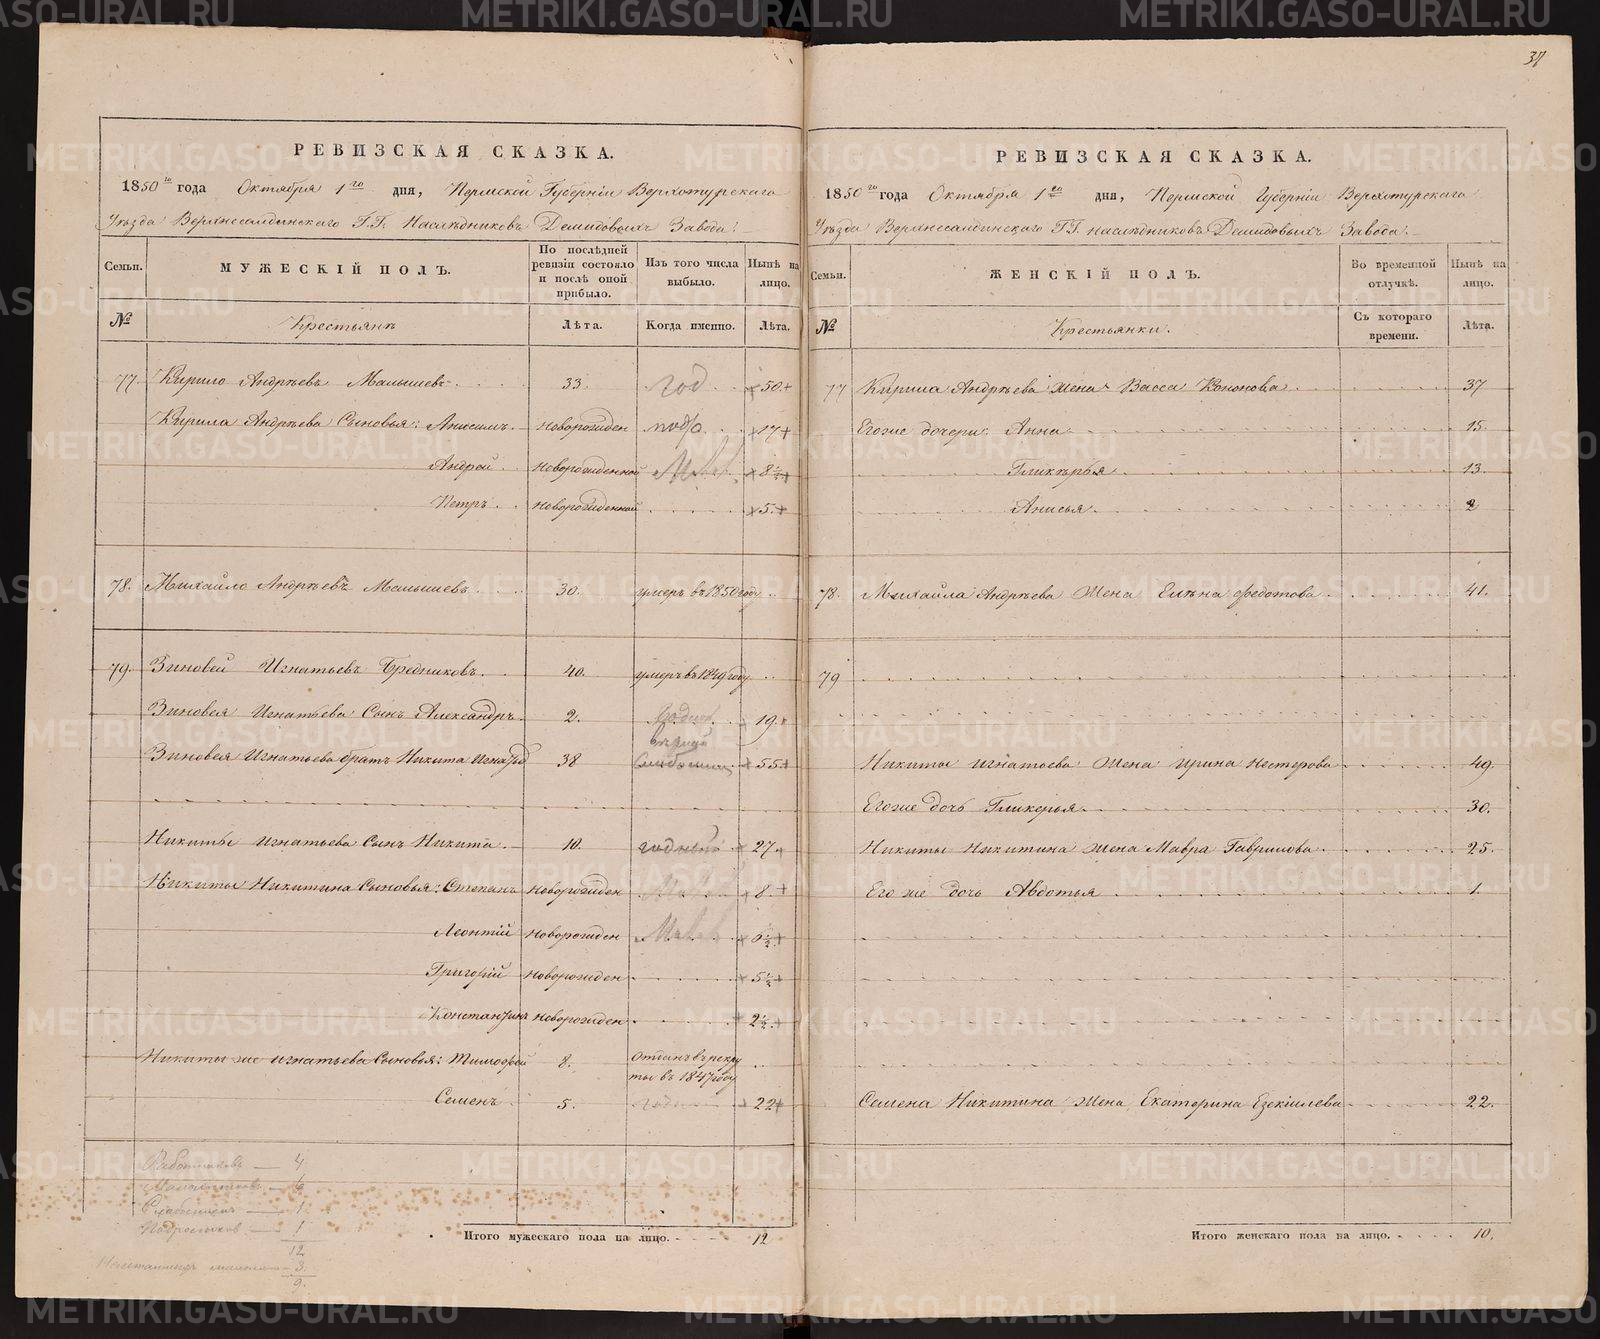 37
РЕВИЗСКАЯ СКАЗКА.
1850го года Октября 1го дня, Пермской Губерніи Верхотурскаго
Уѣзда Верхнесалдинскаго Г.Г. Наслѣдниковъ Демидовыхъ Завода.
Семьи. МУЖЕСКІЙ ПОЛЪ. По послѣдней ревизіи состояло и послѣ оной прибыло. Изъ того числа выбыло. Нынѣ на лицо.
№ Крестьянъ Лѣта. Когда именно. Лѣта.
77. Кирило Андрѣевъ Малышевъ 33. год 50
Кирила Андрѣева Сыновья: Анисимъ новорожден подр. 17
Андрей новорожденной Мал 8 1/2
Петръ новорожденной 5
78. Михайло Андрѣевъ Малышевъ 30. умеръ въ 1850 году
79. Зиновей Игнатьевъ Бредниковъ 40. умеръ въ 1849 году
Зиновея Игнатьева Сынъ Александръ 2. 19
Зиновея Игнатьева братъ Никита 38 55
Никиты Игнатьева Сынъ Никита 10. годный 27
Никиты Никитина Сыновья: Степанъ новорожден Мал 8
Леонтій новорожден Мал
Григорій новорожден 5 1/2
Константинъ новорожден 2 1/2
Никиты же Игнатьева Сыновья: Тимофей 8. отданъ въ рекру
ты въ 1847 году
Семенъ 5. годн 22
Работниковъ — 4
Малолѣтковъ — 6
Слабосиленъ — 1
Подростковъ — 1
12
3
9.
Итого мужескаго пола на лицо. 12
РЕВИЗСКАЯ СКАЗКА.
1850го года Октября 1го дня, Пермской Губерніи Верхотурскаго
Уѣзда Верхнесалдинскаго Г.Г. наслѣдниковъ Демидовыхъ Завода.
Семьи. ЖЕНСКІЙ ПОЛЪ. Во временной отлучкѣ. Нынѣ на лицо.
№ Крестьянки. Съ котораго времени. Лѣта.
77 Кирила Андрѣева жена Васса Кононова 37
Егоже дочери: Анна 15.
Гликѣрья 13.
Анисья 2
78. Михайла Андрѣева жена Елѣна Федотова 41.
79
Никиты Игнатьева жена Ирина Нестерова 49.
Егоже дочь Гликерья 30.
Никиты Никитина жена Мавра Гаврилова 25.
Его же дочь Авдотья 1.
Семена Никитина жена Екатерина Езекіилева 22.
Итого женскаго пола на лицо. 10.
METRIKI.GASO-URAL.RU